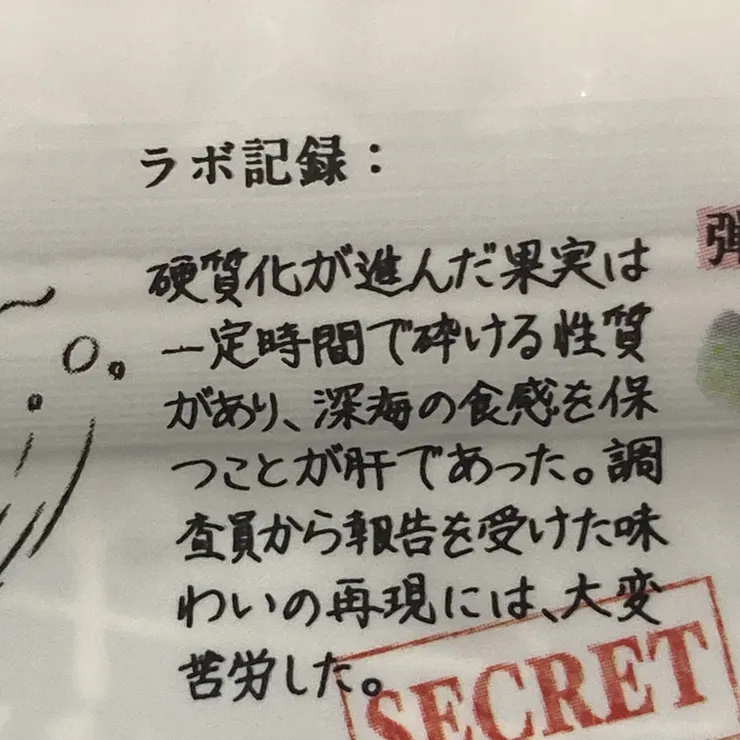 ラボ記録：
硬質化が進んだ果実は
一定時間で砕ける性質
があり、深海の食感を保
つことが肝であった。調
査員から報告を受けた味
わいの再現には、大変
苦労した。
SECRET